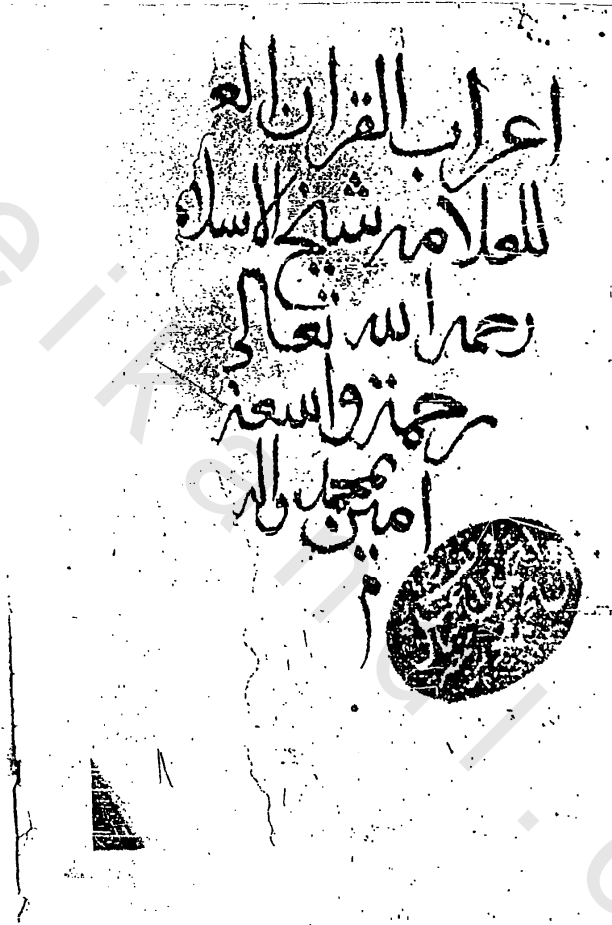 اعراب القران الع
للعلامه شيخ الاسلا
رحمه الله تعالى
رحمة واسعة
بمحمد واله
امين
م